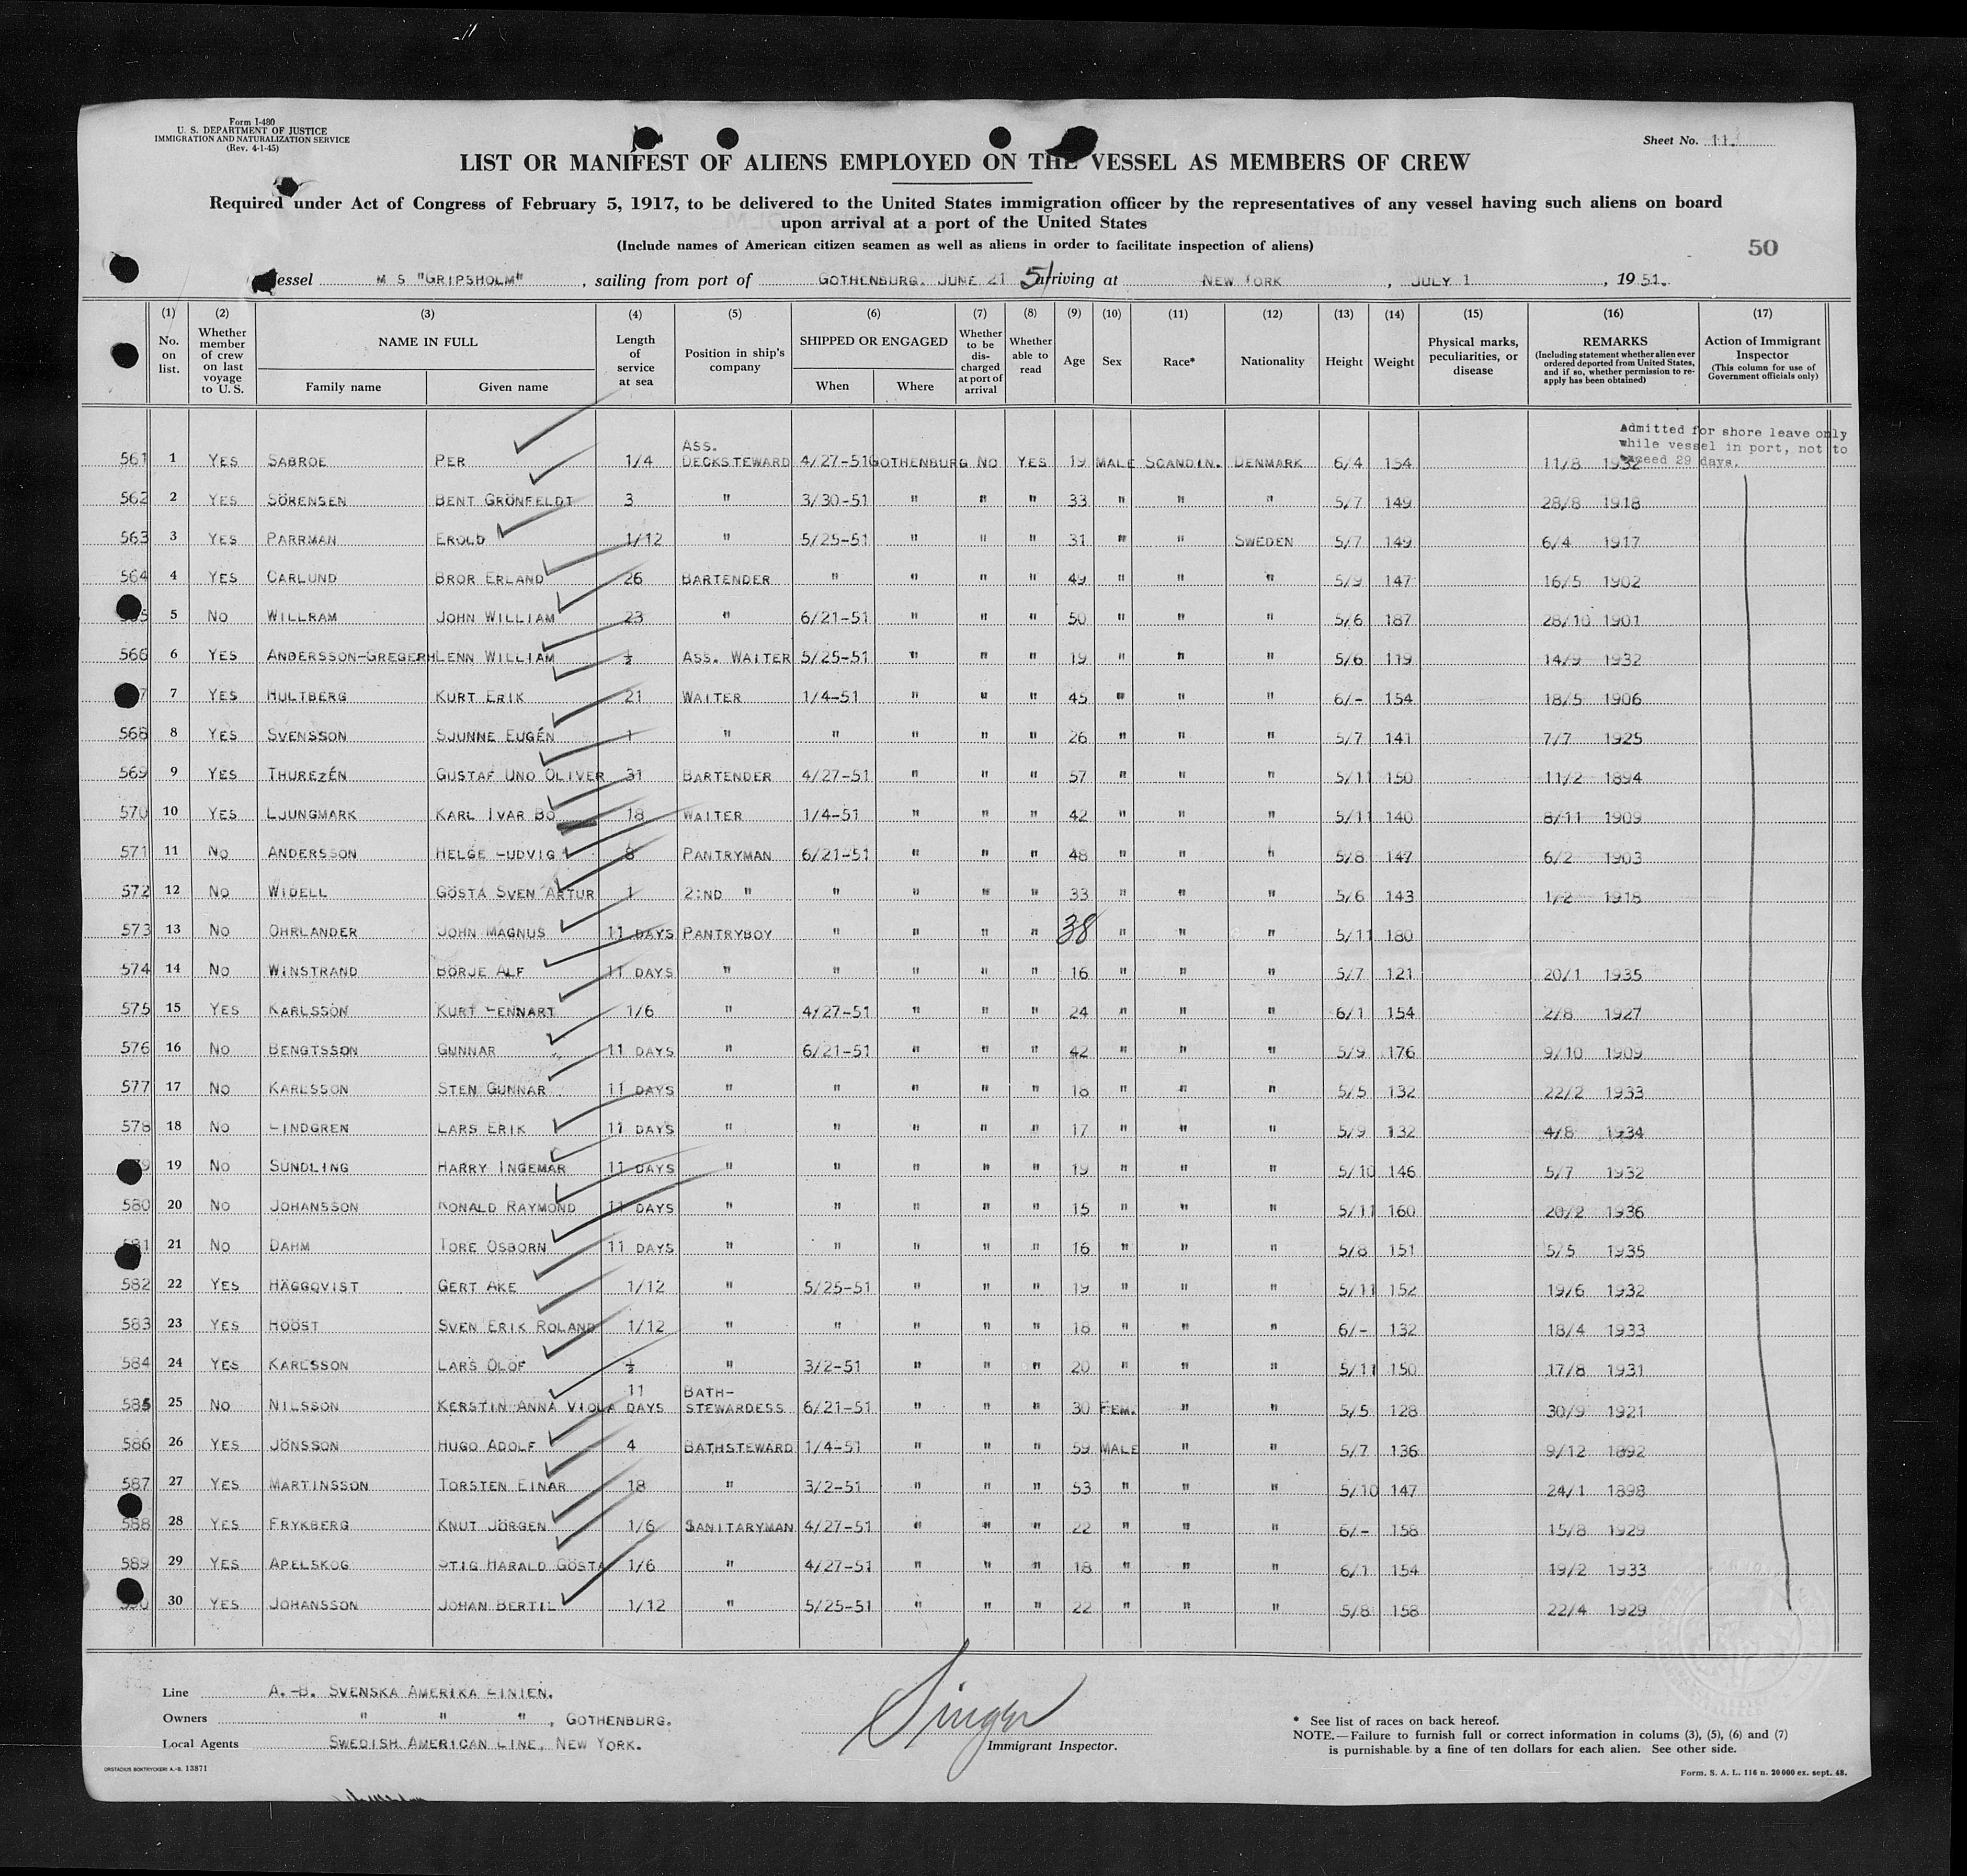 Form I-480
U. S. DEPARTMENT OF JUSTICE
IMMIGRATION AND NATURALIZATION SERVICE
(Rev. 4-1-45)
Sheet No. 11.
LIST OR MANIFEST OF ALIENS EMPLOYED ON THE VESSEL AS MEMBERS OF CREW
Required under Act of Congress of February 5, 1917, to be delivered to the United States immigration officer by the representatives of any vessel having such aliens on board
upon arrival at a port of the United States
(Include names of American citizen seamen as well as aliens in order to facilitate inspection of aliens)
50
essel M S "GRIPSHOLM", sailing from port of GOTHENBURG. JUNE 21 51 arriving at NEW YORK, JULY 1, 1951.
(1) No. on list. (2) Whether member of crew on last voyage to U. S. (3) NAME IN FULL Family name Given name (4) Length of service at sea (5) Position in ship's company (6) SHIPPED OR ENGAGED When Where (7) Whether to be discharged at port of arrival (8) Whether able to read (9) Age (10) Sex (11) Race* (12) Nationality (13) Height (14) Weight (15) Physical marks, peculiarities, or disease (16) REMARKS (Including statement whether alien ever ordered deported from United States, and if so, whether permission to re-apply has been obtained) (17) Action of Immigrant Inspector (This column for use of Government officials only)
Admitted for shore leave only
while vessel in port, not to
exceed 29 days.
561 1 YES SABROE PER 1/4 ASS. DECKSTEWARD 4/27-51 GOTHENBURG NO YES 19 MALE SCANDIN. DENMARK 6/4 154 11/8 1932
562 2 YES SÖRENSEN BENT GRÖNFELDT 3 " 3/30-51 " " " 33 " " " 5/7 149 28/8 1918
563 3 YES PARRMAN EROLD 1/12 " 5/25-51 " " " 31 " " SWEDEN 5/7 149 6/4 1917
564 4 YES CARLUND BROR ERLAND 26 BARTENDER " " " " 49 " " " 5/9 147 16/5 1902
5 5 NO WILLRAM JOHN WILLIAM 23 " 6/21-51 " " " 50 " " " 5/6 187 28/10 1901
566 6 YES ANDERSSON-GREGERHLENN WILLIAM ½ ASS. WAITER 5/25-51 " " " 19 " " " 5/6 119 14/9 1932
7 7 YES HULTBERG KURT ERIK 21 WAITER 1/4-51 " " " 45 " " " 6/- 154 18/5 1906
568 8 YES SVENSSON SJUNNE EUGÉN 1 " " " " " 26 " " " 5/7 141 7/7 1925
569 9 YES THUREZÉN GUSTAF UNO OLIVER 31 BARTENDER 4/27-51 " " " 57 " " " 5/11 150 11/2 1894
570 10 YES LJUNGMARK KARL IVAR BO 18 WAITER 1/4-51 " " " 42 " " " 5/11 140 8/11 1909
571 11 NO ANDERSSON HELGE LUDVIG 8 PANTRYMAN 6/21-51 " " " 48 " " " 5/8 147 6/2 1903
572 12 NO WIDELL GÖSTA SVEN ARTUR 1 2:ND " " " " " 33 " " " 5/6 143 1/2 1918
573 13 NO OHRLANDER JOHN MAGNUS 11 DAYS PANTRYBOY " " " " 38 " " " 5/11 180
574 14 NO WINSTRAND BÖRJE ALF 11 DAYS " " " " " 16 " " " 5/7 121 20/1 1935
575 15 YES KARLSSON KURT LENNART 1/6 " 4/27-51 " " " 24 " " " 6/1 154 2/8 1927
576 16 NO BENGTSSON GUNNAR 11 DAYS " 6/21-51 " " " 42 " " " 5/9 176 9/10 1909
577 17 NO KARLSSON STEN GUNNAR 11 DAYS " " " " " 18 " " " 5/5 132 22/2 1933
578 18 NO LINDGREN LARS ERIK 11 DAYS " " " " " 17 " " " 5/9 132 4/8 1934
9 19 NO SUNDLING HARRY INGEMAR 11 DAYS " " " " " 19 " " " 5/10 146 5/7 1932
580 20 NO JOHANSSON RONALD RAYMOND 11 DAYS " " " " " 15 " " " 5/11 160 20/2 1936
81 21 NO DAHM TORE OSBORN 11 DAYS " " " " " 16 " " " 5/8 151 5/5 1935
582 22 YES HÄGGQVIST GERT AKE 1/12 " 5/25-51 " " " 19 " " " 5/11 152 19/6 1932
583 23 YES HÖÖST SVEN ERIK ROLAND 1/12 " " " " " 18 " " " 6/- 132 18/4 1933
584 24 YES KARLSSON LARS OLOF ½ " 3/2-51 " " " 20 " " " 5/11 150 17/8 1931
585 25 NO NILSSON KERSTIN ANNA VIOLA 11 DAYS BATH-STEWARDESS 6/21-51 " " " 30 FEM. " " 5/5 128 30/9 1921
586 26 YES JÖNSSON HUGO ADOLF 4 BATHSTEWARD 1/4-51 " " " 59 MALE " " 5/7 136 9/12 1892
587 27 YES MARTINSSON TORSTEN EINAR 18 " 3/2-51 " " " 53 " " " 5/10 147 24/1 1898
588 28 YES FRYKBERG KNUT JÖRGEN 1/6 SANITARYMAN 4/27-51 " " " 22 " " " 6/- 158 15/8 1929
589 29 YES APELSKOG STIG HARALD GÖSTA 1/6 " 4/27-51 " " " 18 " " " 6/1 154 19/2 1933
590 30 YES JOHANSSON JOHAN BERTIL 1/12 " 5/25-51 " " " 22 " " " 5/8 158 22/4 1929
Line A.-B. SVENSKA AMERIKA LINIEN.
Owners " " ", GOTHENBURG.
Local Agents SWEDISH AMERICAN LINE, NEW YORK.
Singer
Immigrant Inspector.
* See list of races on back hereof.
NOTE.—Failure to furnish full or correct information in colums (3), (5), (6) and (7)
is punishable by a fine of ten dollars for each alien. See other side.
ORSTADIUS BOKTRYCKERI A.-B. 13871
Form. S. A. L. 116 n. 20 000 ex. sept. 48.